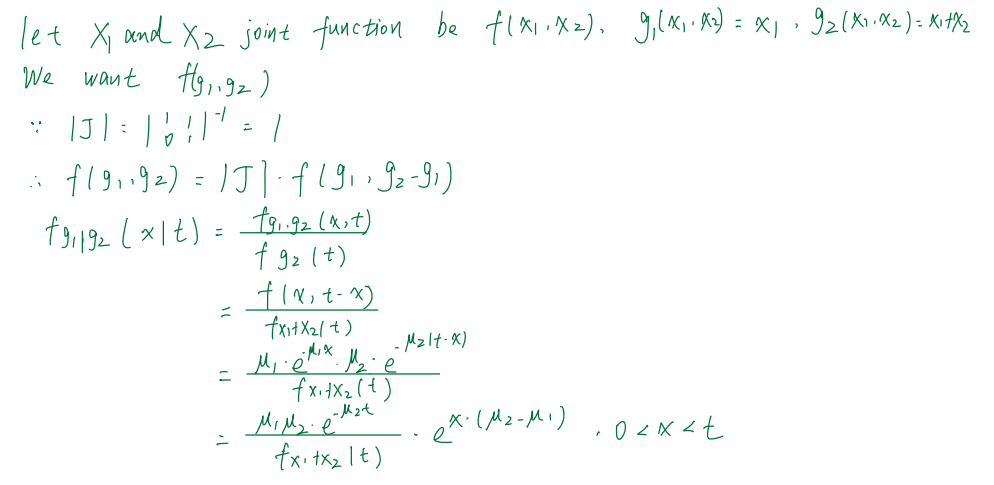 let X₁ and X₂ joint function be f(x₁,x₂), g₁(x₁,x₂) = x₁, g₂(x₁,x₂) = x₁+x₂
We want f(g₁,g₂)
∵ |J| = |1 1; 0 1|⁻¹ = 1
∴ f(g₁,g₂) = |J| · f(g₁, g₂-g₁)
f g₁|g₂ (x|t) = f g₁,g₂ (x,t) / f g₂ (t)
= f(x, t-x) / f x₁+x₂(t)
= μ₁·e^(-μ₁x) · μ₂·e^(-μ₂(t-x)) / f x₁+x₂(t)
= μ₁μ₂·e^(-μ₂t) / f x₁+x₂(t) · e^(x·(μ₂-μ₁)) , 0<x<t